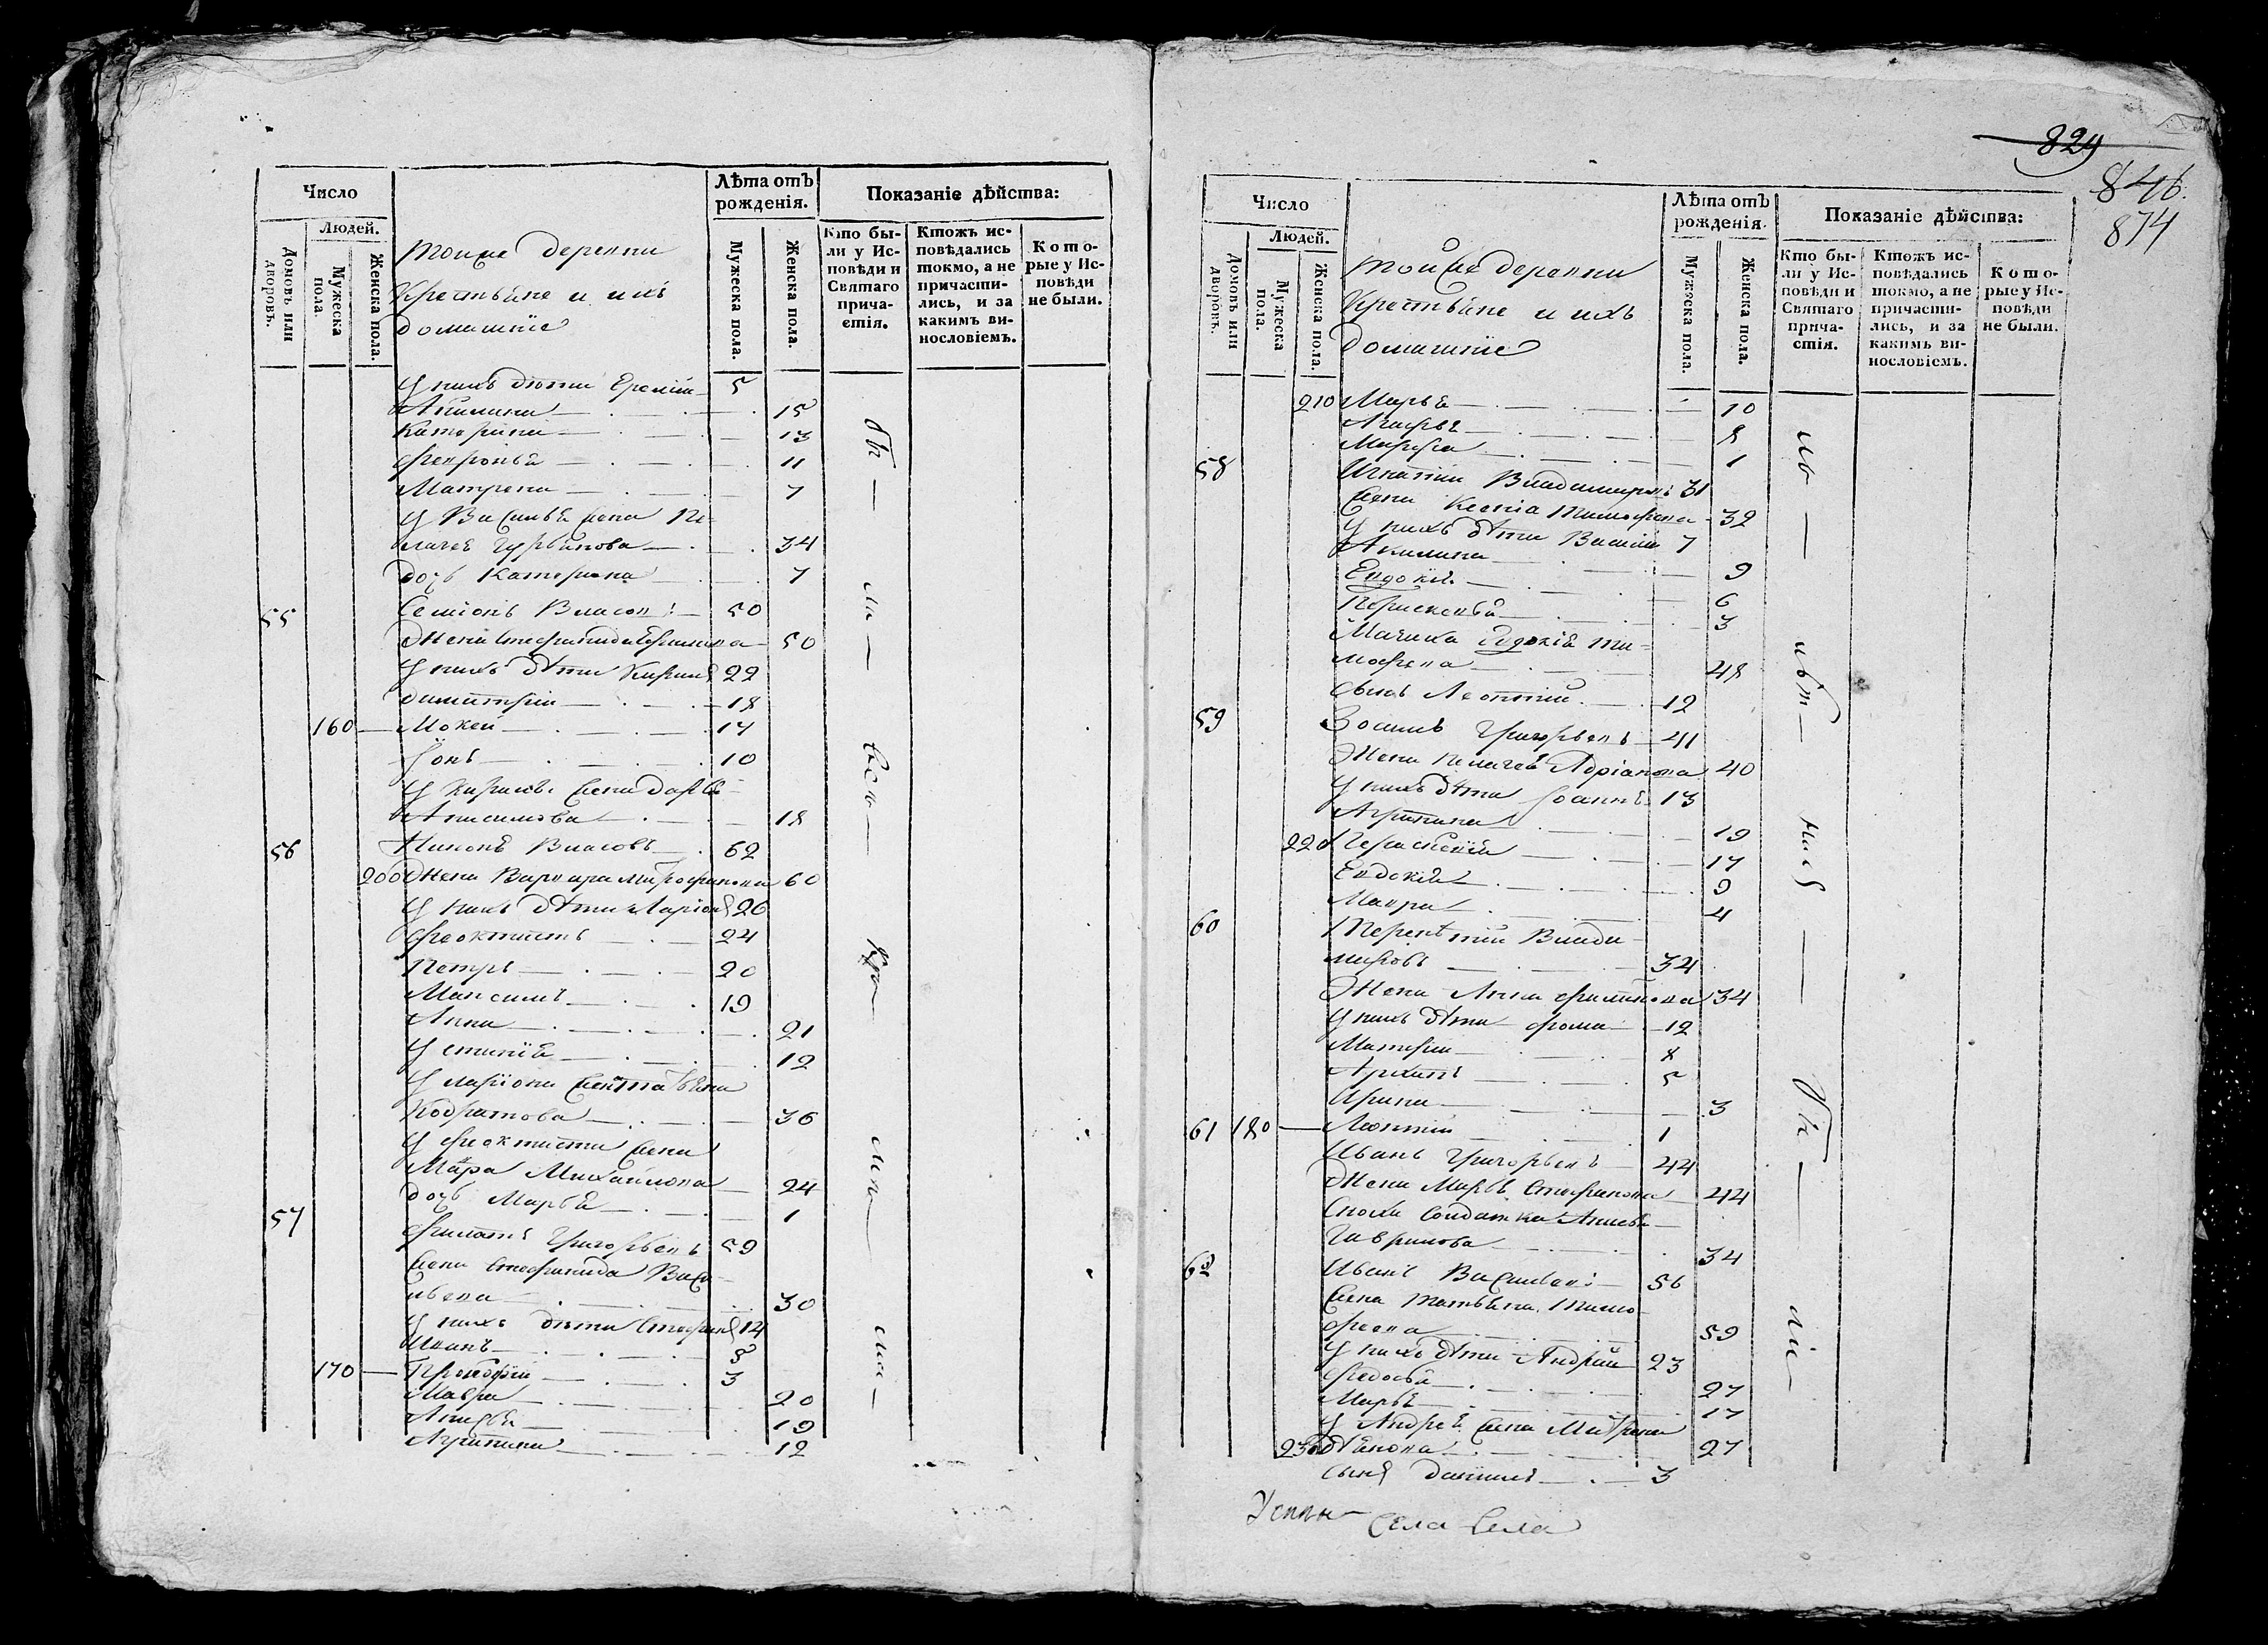 Число
Лѣта отъ рожденія.
Показаніе дѣйства:
Людей.
Домовъ или дворовъ.
Мужеска пола.
Женска пола.
Мужеска пола.
Женска пола.
Кто были у Исповѣди и Святаго причастія.
Ктожъ исповѣдались токмо, а не причастились, и за какимъ винословіемъ.
Которые у Исповѣди не были.
тойже деревни
Крестьяне и ихъ
домашніе
у нихъ дѣти Еремій 5
Акилина 15
Катерина 13
Февронья 11
Матрена 7
у Василья жена Пе-
лагея Гурьянова 34
дочь Катерина 7
55 Семіонъ Власовъ 50
Жена Стефанида 50
у нихъ дѣти Кирилъ 22
Димитрій 18
160 Мокей 14
Іонъ 10
у Кирилы жена Дарья
Анисимова 18
56 Никонъ Власовъ 62
200 Жена Варвара Митрофанова 60
у нихъ дѣти Ларіонъ 26
Феоктистъ 24
Петръ 20
Максимъ 19
Анна 21
Устинія 12
у Ларіона жена Татьяна
Кодратова 36
у Феоктиста жена
Мавра Михайлова 24
дочь Марья 1
57 Филатъ Григорьевъ 59
Жена Стефанида Васи-
льева 30
у нихъ дѣти Стефанъ 14
Иванъ 8
170 Прокофій 3
Мавра 20
Анисья 19
Агрипина 12
829
846.
874
Число
Лѣта отъ рожденія.
Показаніе дѣйства:
Людей.
Домовъ или дворовъ.
Мужеска пола.
Женска пола.
Мужеска пола.
Женска пола.
Кто были у Исповѣди и Святаго причастія.
Ктожъ исповѣдались токмо, а не причастились, и за какимъ винословіемъ.
Которые у Исповѣди не были.
тойже деревни
Крестьяне и ихъ
домашніе
210 Марья 10
Агафья 8
Марфа 1
58 Игнатій Владимировъ 31
Жена Ксенія Тимофеева 32
у нихъ дѣти Василій 7
Акилина 9
Евдокія 6
Параскевья 3
Мачиха Евдокія Ти-
мофеева 48
сынъ Леонтій 12
59 Зосимъ Григорьевъ 41
Жена Пелагея Адріанова 40
у нихъ дѣти Іоаннъ 13
Агрипина 19
220 Параскевія 17
Евдокія 9
Мавра 4
60 Терентій Влади-
мировъ 34
Жена Анна Филипова 34
у нихъ дѣти Фома 12
Матвѣй 8
Архипъ 5
Ирина 3
61 180 Леонтій 1
Иванъ Григорьевъ 44
Жена Марья Стефанова 44
Сноха Солдатка Анисья
Гаврилова 34
62 Иванъ Васильевъ 56
Жена Татьяна Тимо-
феева 59
у нихъ дѣти Андрей 23
Федосья 27
Марья 17
у Андрея жена Матрена
230 27
сынъ Даніилъ 3